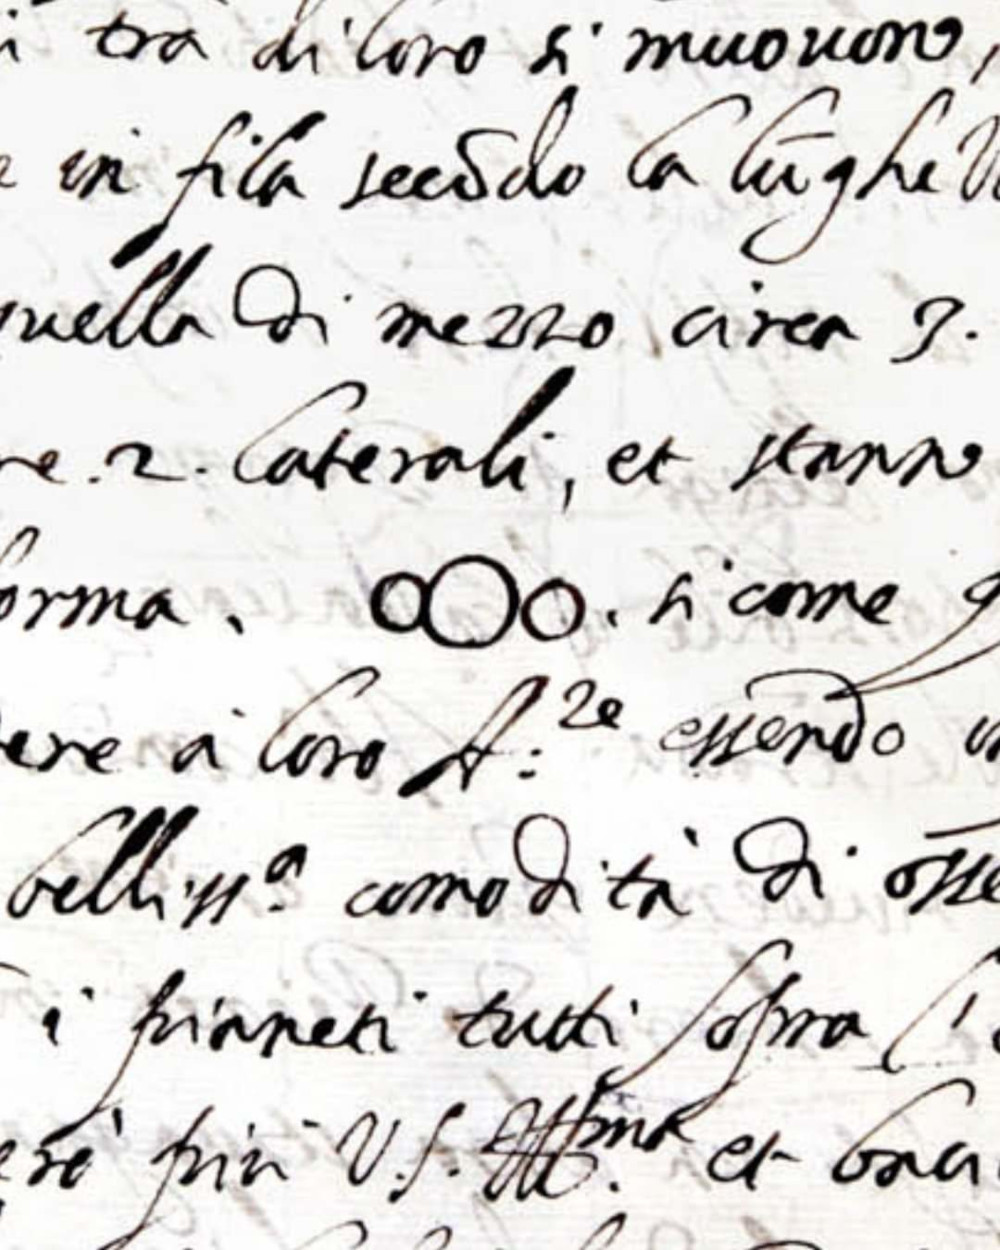 tra di loro si muovono,
in fila secōdo la lūghe
quella di mezzo circa 3.
re. 2. laterali, et stanno
forma. oOo. si come
dere à loro A:ze essendo
belliss:a comodità di osse
i pianeti tutti sopra l'
erò più V.S. Ill:ma et